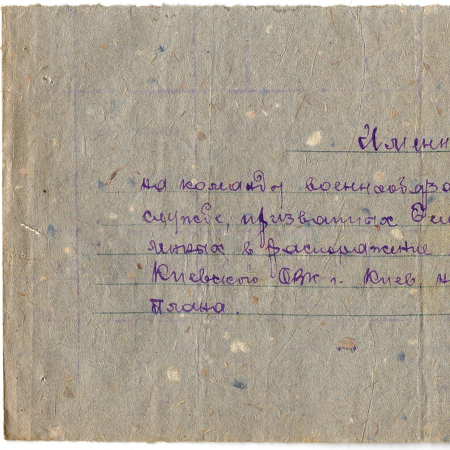 Именн
на команду военнообяза
службе, призванных
в распоряжение
Киевского ОВК г. Киев н
плана.